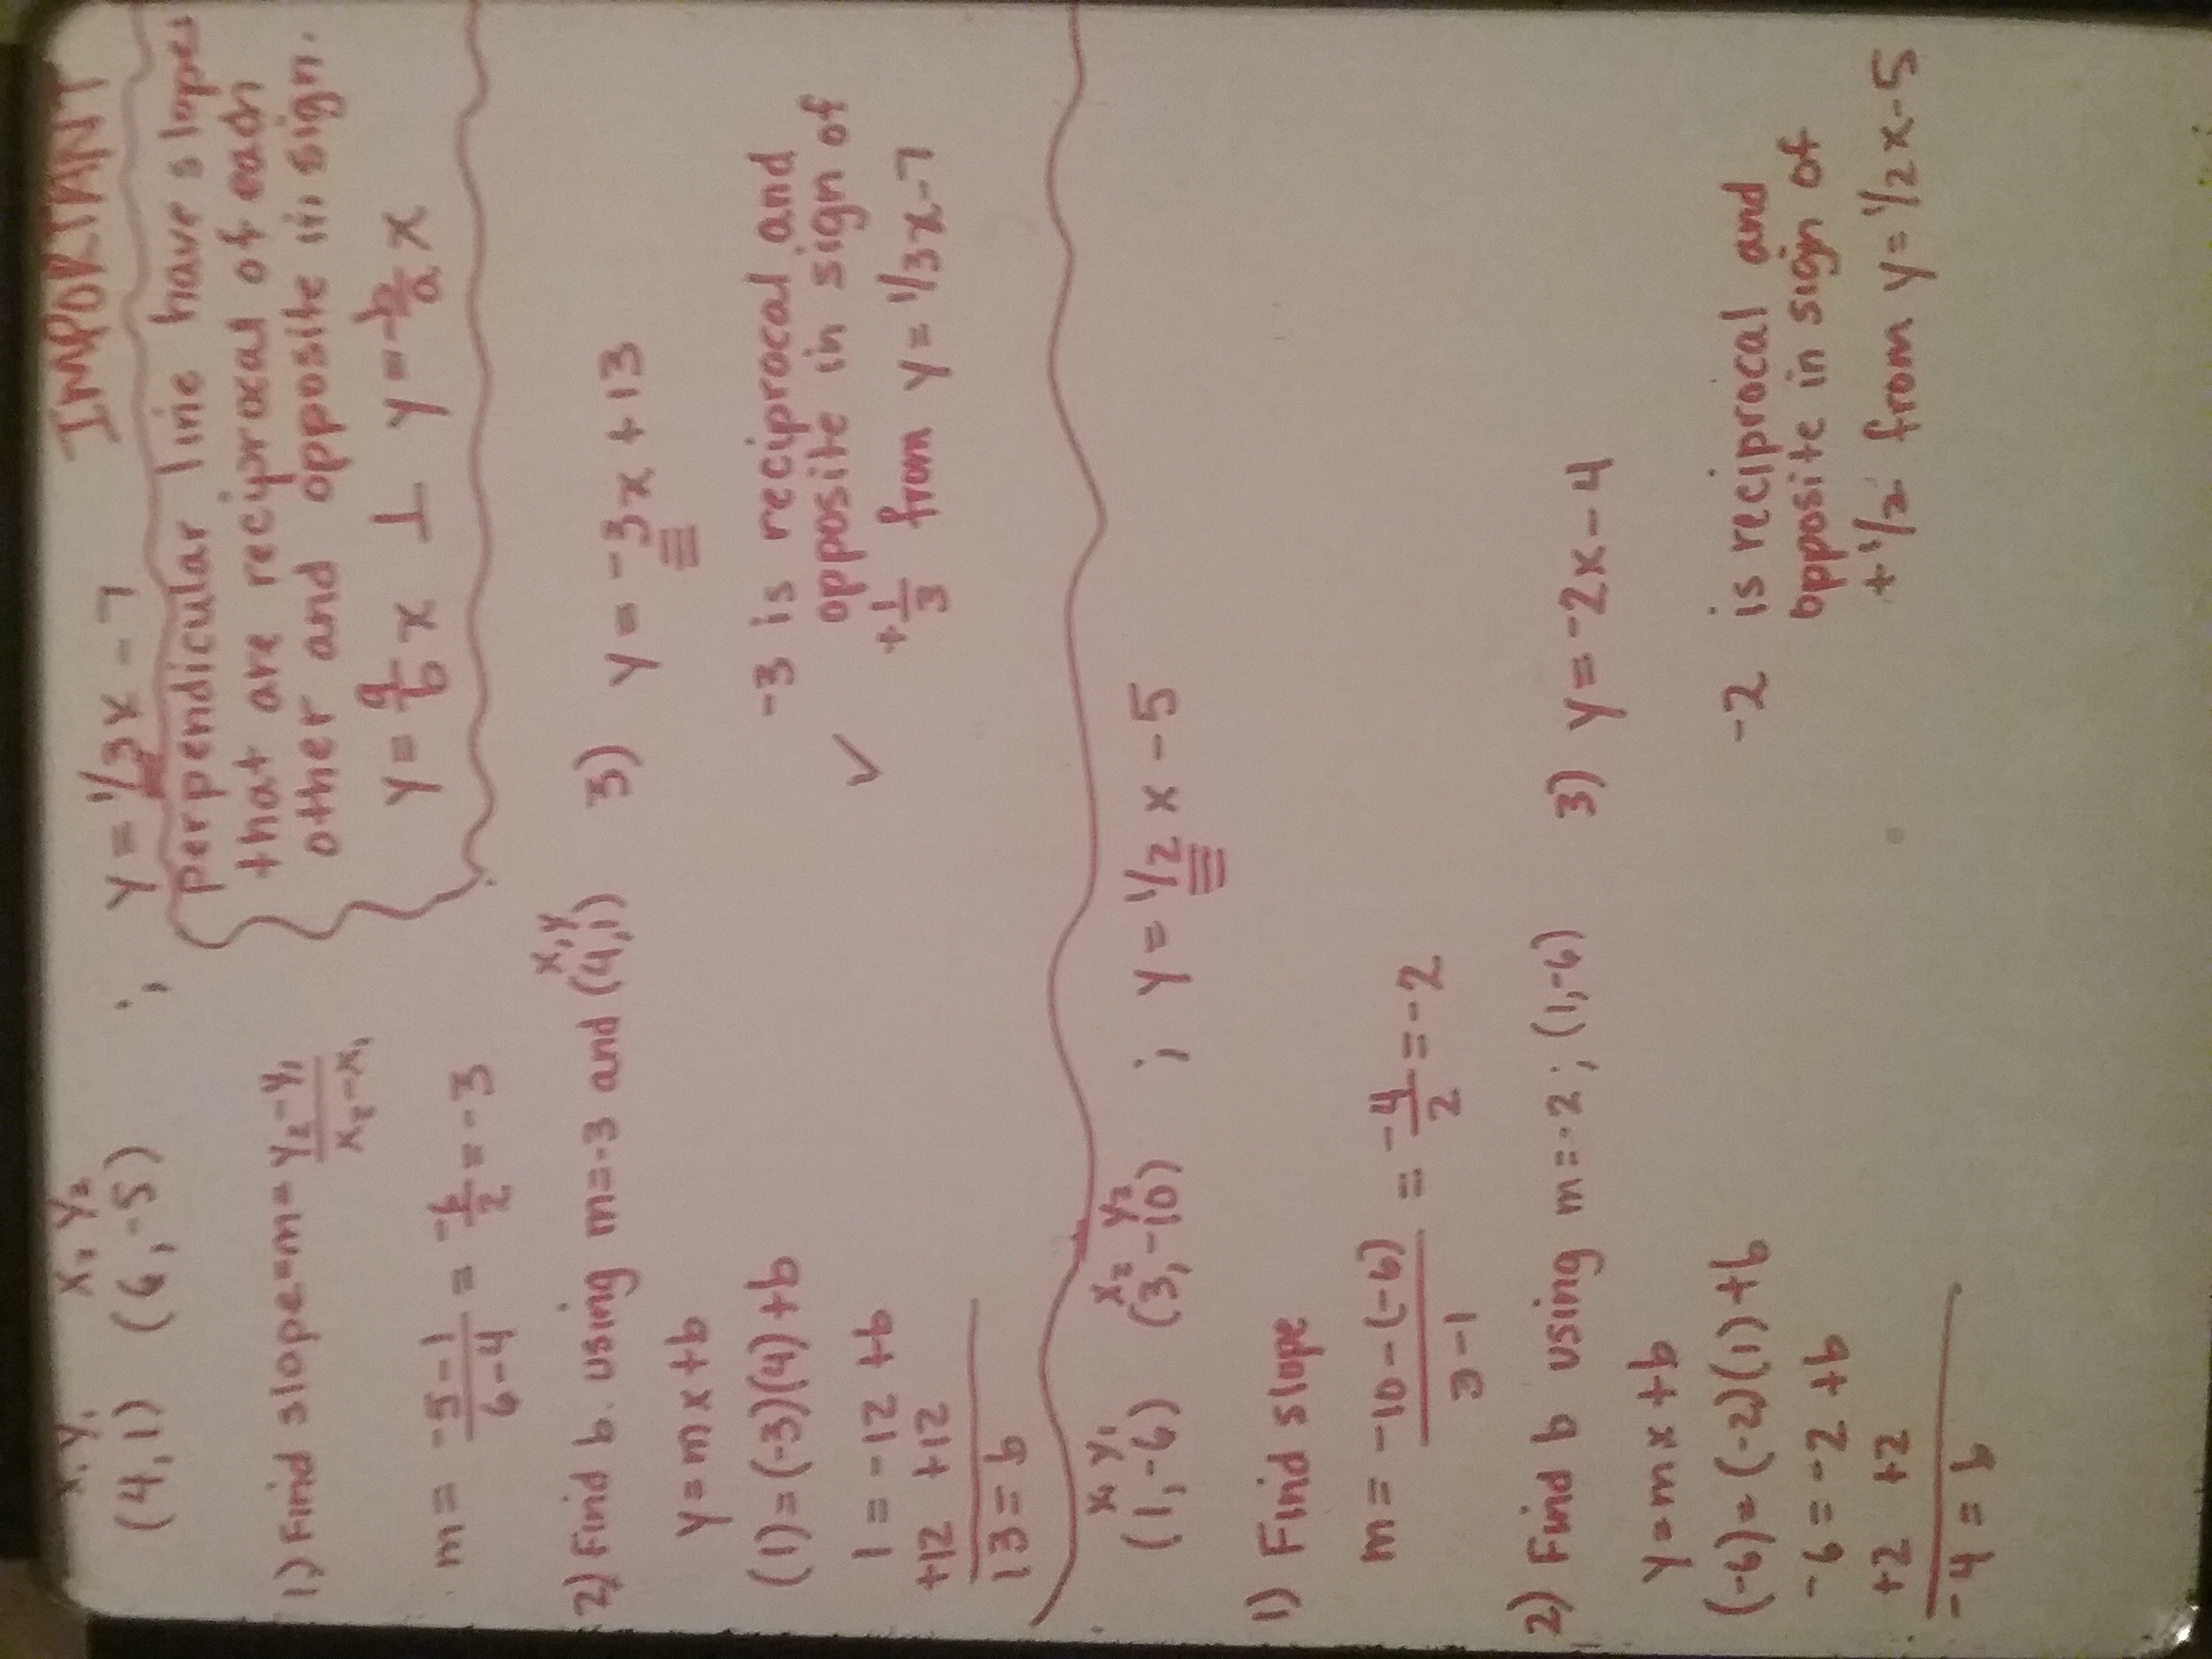 x₁ y₁ x₂ y₂
(4,1) (6,-5) ; y = 1/3x - 7 IMPORTANT
perpendicular line have slopes
that are reciprocal of each
other and opposite in sign.
y = a/b x ⊥ y = -b/a x
1) Find slope = m = y₂-y₁/x₂-x₁
m = -5-1/6-4 = -6/2 = -3
x, y
2) Find b. using m=-3 and (4,1)
y = mx+b
(1) = (-3)(4)+b
1 = -12 +b
+12 +12
13 = b
3) y = -3x + 13
-3 is reciprocal and
opposite in sign of
✓ +1/3 from y = 1/3x-7
x₁ y₁ x₂ y₂
(1,-6) (3,-10) ; y = 1/2 x - 5
1) Find slope
m = -10-(-6)/3-1 = -4/2 = -2
2) Find b using m=-2 ; (1,-6)
y = mx +b
(-6) = (-2)(1)+b
-6 = -2 +b
+2 +2
-4 = b
3) y = -2x - 4
-2 is reciprocal and
opposite in sign of
+1/2 from y = 1/2x-5